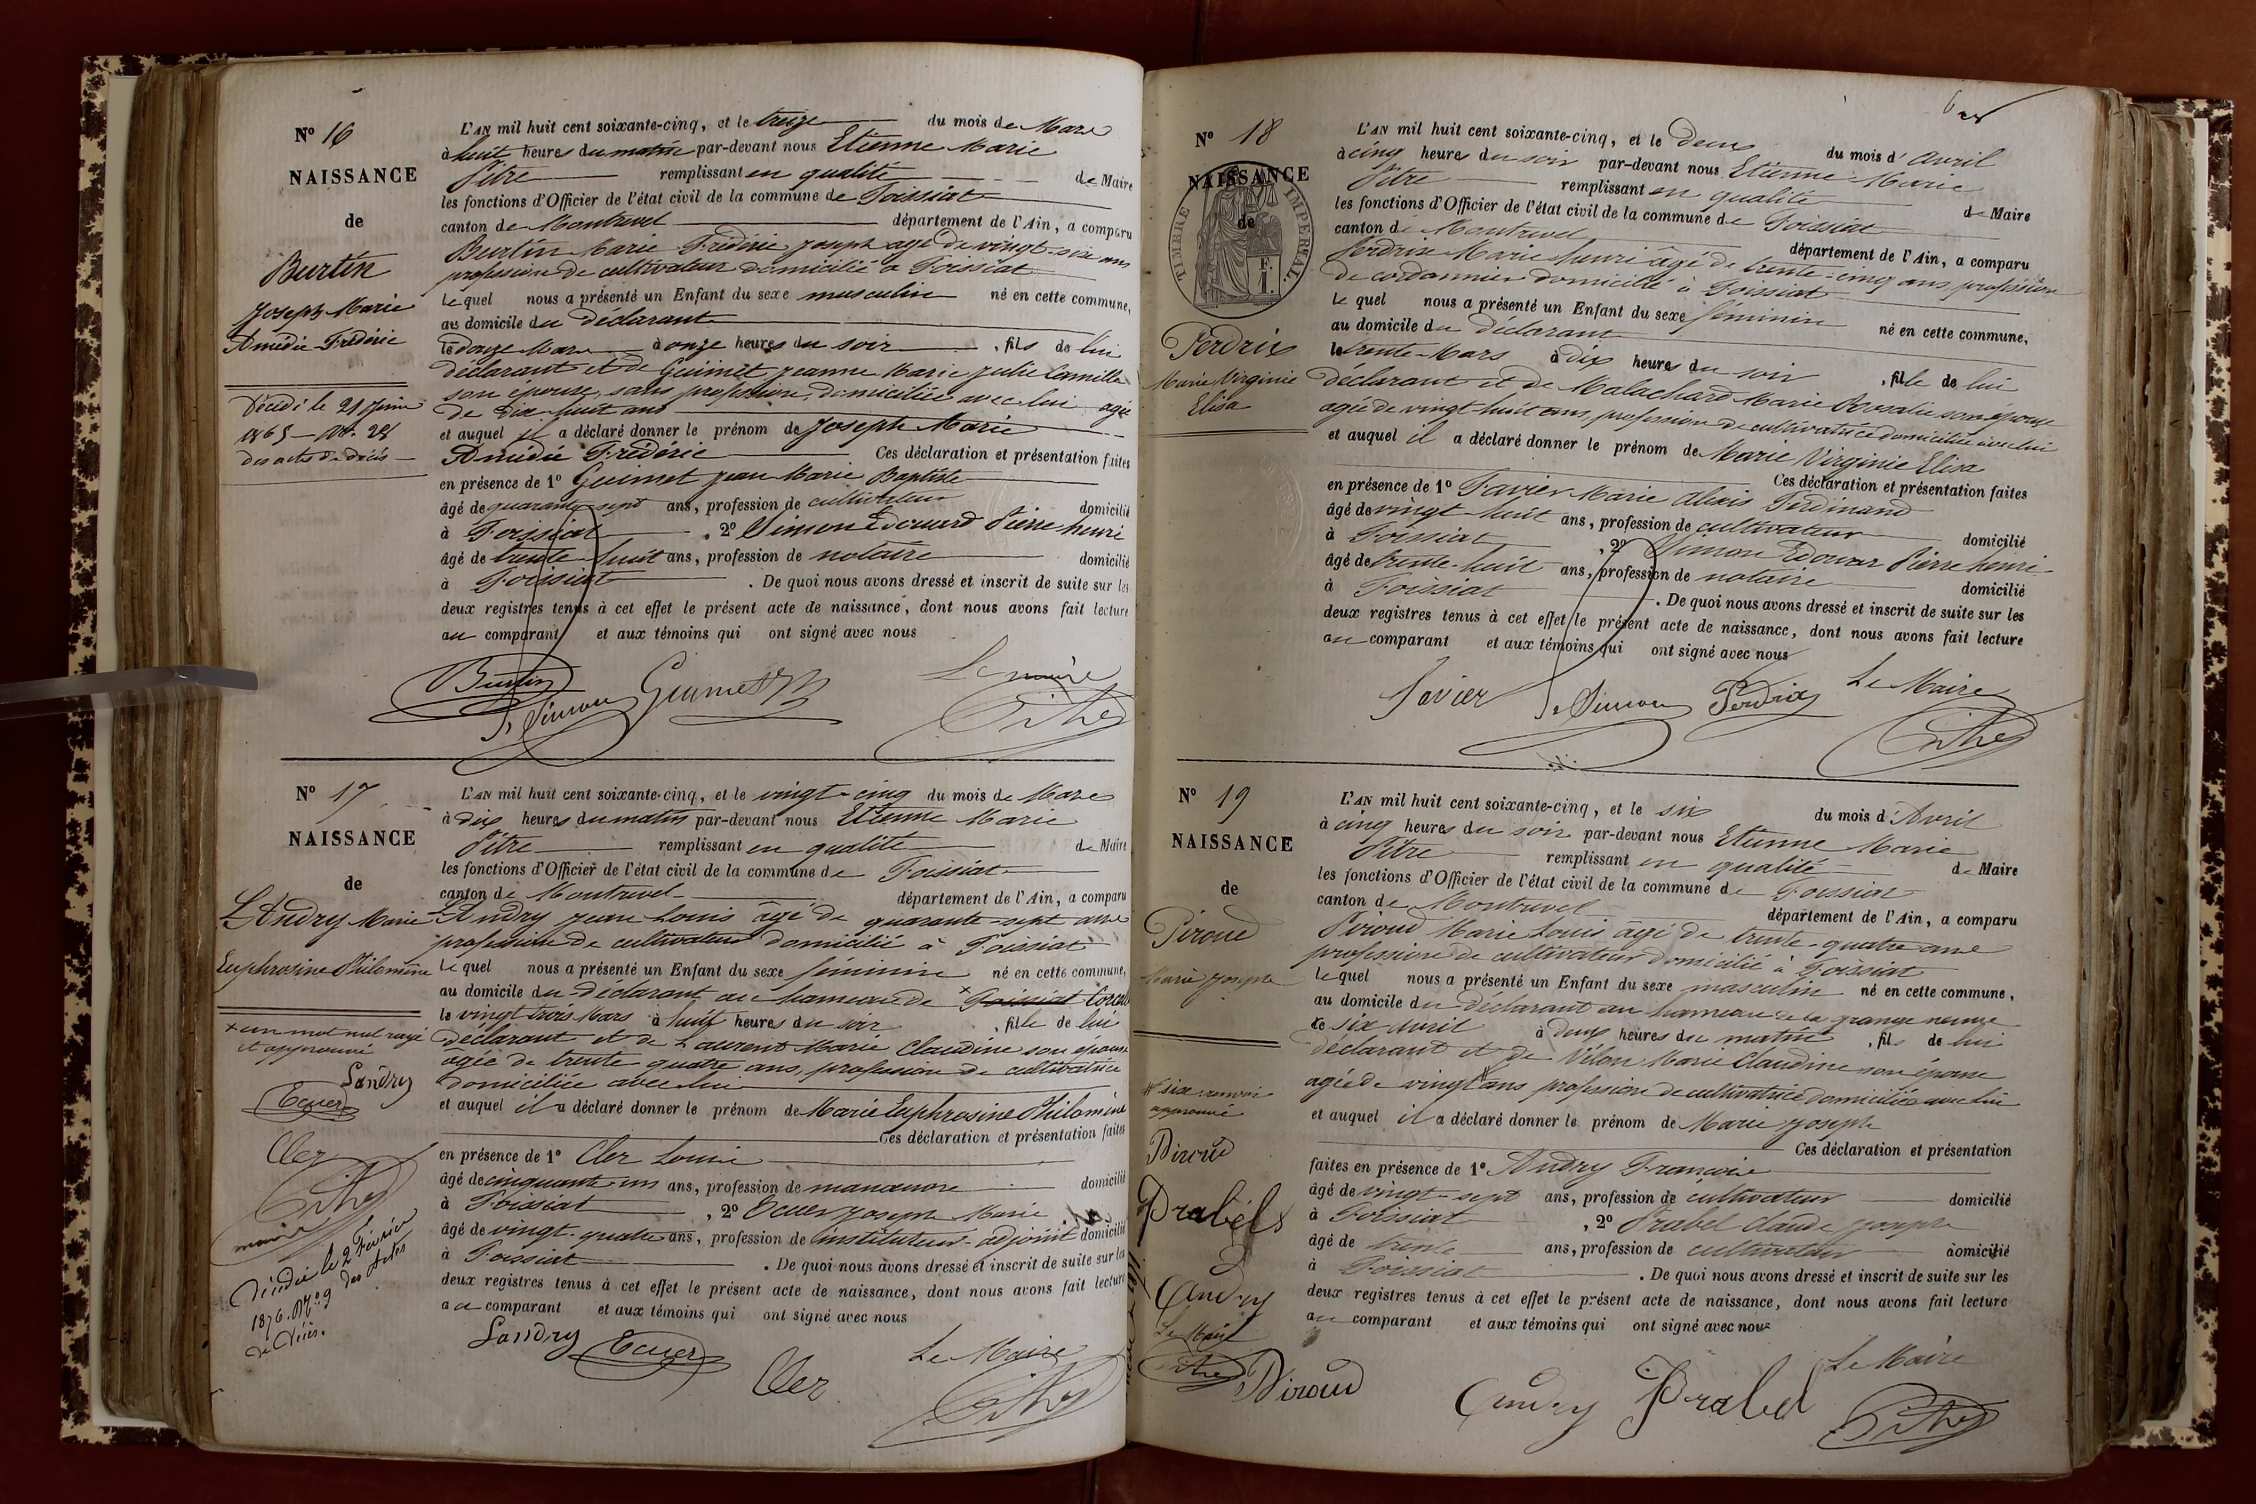 Nº 16
NAISSANCE
de
Burtin
Joseph Marie
Amédée Frédéric
Décédé le 21 Juin
1865 — Nº 28
des actes de décès
L'AN mil huit cent soixante-cinq, et le treize du mois de Mars
à huit heures du matin par-devant nous Etienne Marie
Pitre remplissant en qualité de Maire
les fonctions d'Officier de l'état civil de la commune de Foissiat
canton de Montrevel département de l'Ain, a comparu
Burtin Marie Frédéric joseph agé de vingt-six ans
profession de cultivateur domicilié à Foissiat
le quel nous a présenté un Enfant du sexe musculin né en cette commune,
au domicile du déclarant
le douze Mars à onze heures du soir, fils de lui
déclarant et de Guimet jeanne Marie julie Camille
son épouse, sans profession, domiciliée avec lui agée
de dix huit ans
et auquel il a déclaré donner le prénom de Joseph Marie
Amédée Frédéric Ces déclaration et présentation faites
en présence de 1º Guimet jean Marie Baptiste
âgé de quarante-sept ans, profession de cultivateur domicilié
à Foissiat, 2º Simon Edouard Pierre henri
âgé de trente-huit ans, profession de notaire domicilié
à Foissiat. De quoi nous avons dressé et inscrit de suite sur les
deux registres tenus à cet effet le présent acte de naissance, dont nous avons fait lecture
au comparant et aux témoins qui ont signé avec nous
Burtin Simon Guimet Le maire
Pitre
Nº 17
NAISSANCE
de
Landry Marie
Euphrosine Philomène
+ un mot nul rayé
et approuvé
Landry
Ecuer
Cler
Pitre
maire
Décédée le 2 Février
1876. Nº 9 des Actes
de Décès.
L'AN mil huit cent soixante-cinq, et le vingt-cinq du mois de Mars
à dix heures du matin par-devant nous Etienne Marie
Pitre remplissant en qualité de Maire
les fonctions d'Officier de l'état civil de la commune de Foissiat
canton de Montrevel département de l'Ain, a comparu
Landry jean Louis âgé de quarante-sept ans
profession de cultivateur domicilié à Foissiat
le quel nous a présenté un Enfant du sexe féminin né en cette commune,
au domicile du déclarant au hameau de + Foissiat
le vingt trois Mars à huit heures du soir, fille de lui
déclarant et de Laurent Marie Claudine son épouse
agée de trente quatre ans, profession de cultivatrice
domiciliée avec lui
et auquel il a déclaré donner le prénom de Marie Euphrosine Philomène
Ces déclaration et présentation faites
en présence de 1º Cler Louis
âgé de cinquante-un ans, profession de manœuvre domicilié
à Foissiat, 2º Ecuer joseph Marie
âgé de vingt-quatre ans, profession de instituteur-adjoint domicilié
à Foissiat. De quoi nous avons dressé et inscrit de suite sur les
deux registres tenus à cet effet le présent acte de naissance, dont nous avons fait lecture
au comparant et aux témoins qui ont signé avec nous
Landry Ecuer Cler Le Maire
Pitre
Nº 18
NAISSANCE
de
TIMBRE IMPERIAL
Perdrix
Marie Virginie
Elisa
L'AN mil huit cent soixante-cinq, et le deux du mois d'avril
à cinq heures du soir par-devant nous Etienne Marie
Pitre remplissant en qualité de Maire
les fonctions d'Officier de l'état civil de la commune de Foissiat
canton de Montrevel département de l'Ain, a comparu
Perdrix Marie henri âgé de trente-cinq ans, profession
de cordonnier domicilié à Foissiat
le quel nous a présenté un Enfant du sexe féminin né en cette commune,
au domicile du déclarant
le trente Mars à dix heures du soir, fille de lui
déclarant et de Malachard Marie Rosalie son épouse
agée de vingt huit ans, profession de cultivatrice domiciliée avec lui
et auquel il a déclaré donner le prénom de Marie Virginie Elisa
Ces déclaration et présentation faites
en présence de 1º Favier Marie Alexis Ferdinand
âgé de vingt huit ans, profession de cultivateur domicilié
à Foissiat, 2º Simon Edouar Pierre henri
âgé de trente-huit ans, profession de notaire domicilié
à Foissiat. De quoi nous avons dressé et inscrit de suite sur les
deux registres tenus à cet effet le présent acte de naissance, dont nous avons fait lecture
au comparant et aux témoins qui ont signé avec nous
Favier Simon Perdrix Le Maire
Pitre
Nº 19
NAISSANCE
de
Piroud
Marie joseph
# six renvoi
approuvé
Piroud
Prabel
Andry
Le Maire
Pitre
L'AN mil huit cent soixante-cinq, et le six du mois d'Avril
à cinq heures du soir par-devant nous Etienne Marie
Pitre remplissant en qualité de Maire
les fonctions d'Officier de l'état civil de la commune de Foissiat
canton de Montrevel département de l'Ain, a comparu
Piroud Marie Louis âgé de trente-quatre ans
profession de cultivateur domicilié à Foissiat
le quel nous a présenté un Enfant du sexe masculin né en cette commune,
au domicile du déclarant au hameau de la grange neuve
le six Avril à deux heures du matin, fils de lui
déclarant et de Vélon Marie Claudine son épouse
agée de vingt # ans profession de cultivatrice domiciliée avec lui
et auquel il a déclaré donner le prénom de Marie joseph
Ces déclaration et présentation
faites en présence de 1º Andry François
âgé de vingt-sept ans, profession de cultivateur domicilié
à Foissiat, 2º Prabel Claude joseph
âgé de trente ans, profession de cultivateur domicilié
à Foissiat. De quoi nous avons dressé et inscrit de suite sur les
deux registres tenus à cet effet le présent acte de naissance, dont nous avons fait lecture
au comparant et aux témoins qui ont signé avec nous
Piroud Andry Prabel Le Maire
Pitre